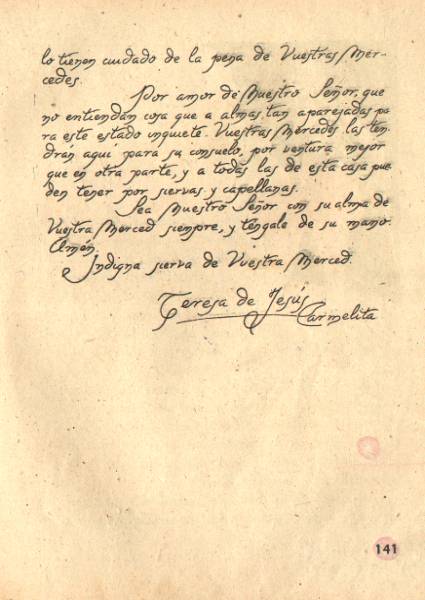 lo tienen cuidado de la pena de Vuestras Mer-
cedes.
Por amor de Nuestro Señor, que
no entiendan cosa que a almas, tan aparejadas pa
ra este estado inquiete. Vuestras Mercedes las ten
drán aquí para su consuelo, por ventura mejor
que en otra parte, y a todas las de esta casa pue
den tener por siervas y capellanas.
Sea Nuestro Señor con su alma de
Vuestra Merced siempre, y téngale de su mano.
Amén.
Indigna sierva de Vuestra Merced.
Teresa de Jesús
Carmelita
141